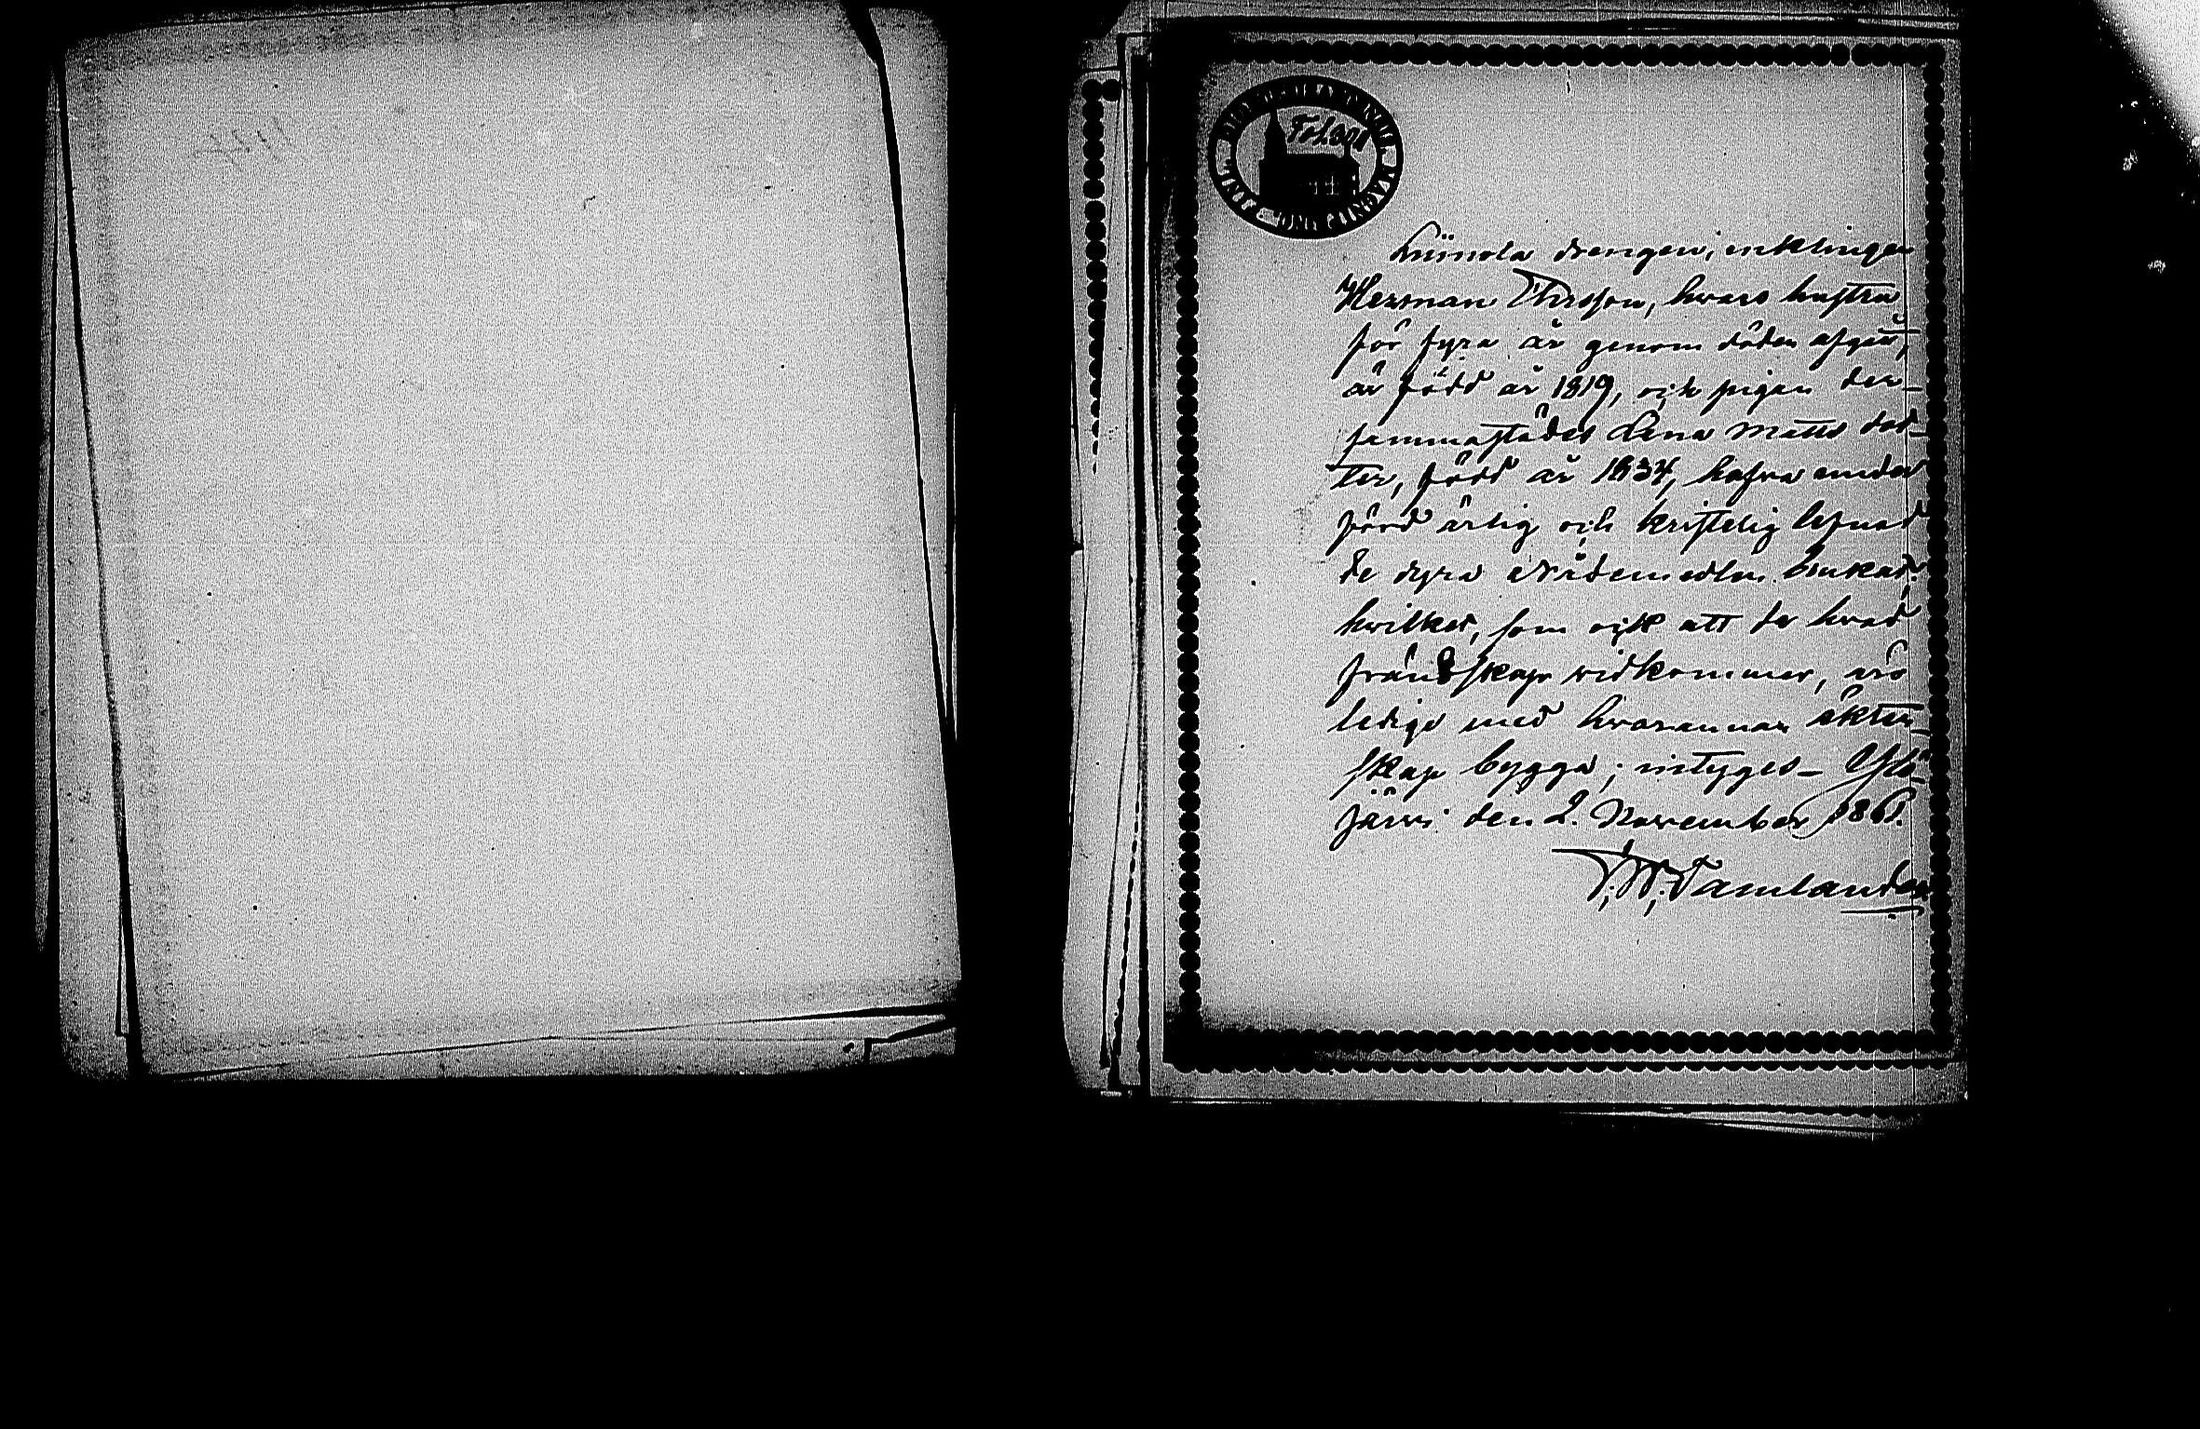 Fol. 391
drengen, enklingen
Herman Thirsson, hvars hustru
för fyra år genom döden afgått,
är född år 1819, och pigan der-
sammastädes Lena Matts dot-
ter, född år 1834, hafva under
förd ärlig och kristelig lefnad
de dyra Nådemedlen brukat;
hvilket, som ock att de hvad
frändskap vidkommer, äro
lediga med hvarannan äkten-
skap bygga; intygas – Ylö-
järvi den 2. November 1861.
Tamlander